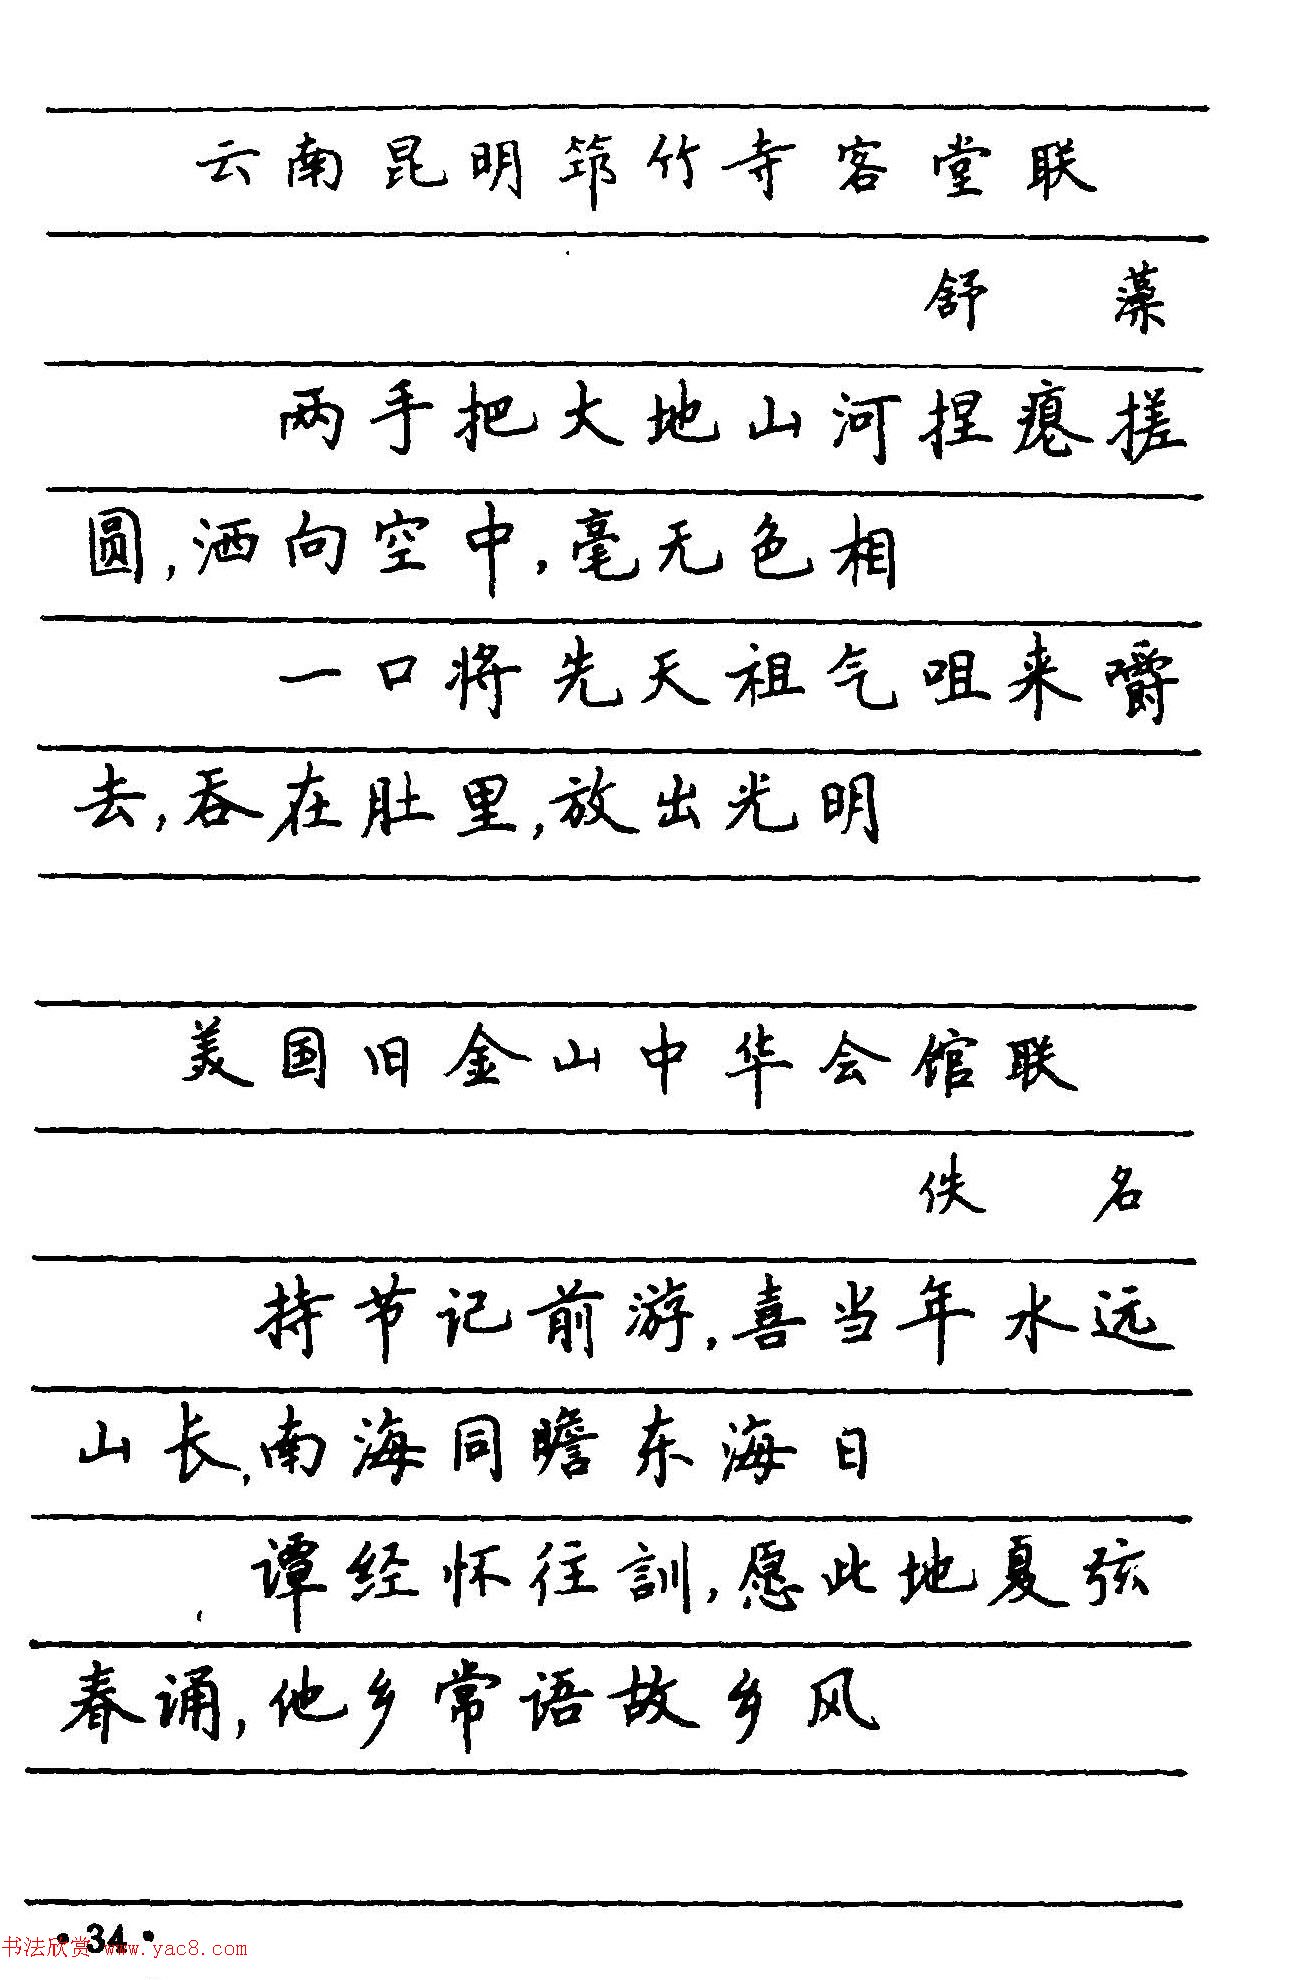 云南昆明筇竹寺客堂联
舒 藻
两手把大地山河捏瘪搓
圆,洒向空中,毫无色相
一口将先天祖气咀来嚼
去,吞在肚里,放出光明
美国旧金山中华会馆联
佚 名
持节记前游,喜当年水远
山长,南海同瞻东海日
谭经怀往訓,愿此地夏弦
春诵,他乡常语故乡风
·34·
书法欣赏 www.yac8.com